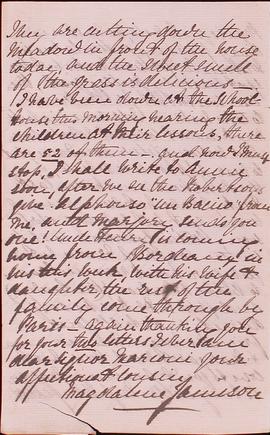 They are cutting down the
meadow in front of the house
today, and the sweet smell
of the grass is delicious -
I have been down at the School-
house this morning hearing the
children at their lessons, there
are 52 of them - and now I must
stop, I shall write to Annie
soon, after me on the Robertsons
give Alphonso "un bacio" from
me, and Marjory sends you
one! Uncle Henry is coming
home from Bordeaux in
his this week, with his wife &
daughter the rest of the
family come through by
Paris - again thanking you
for your two letters I
dear Signor Marconi your
affectionate cousin
Magdalene Jameson